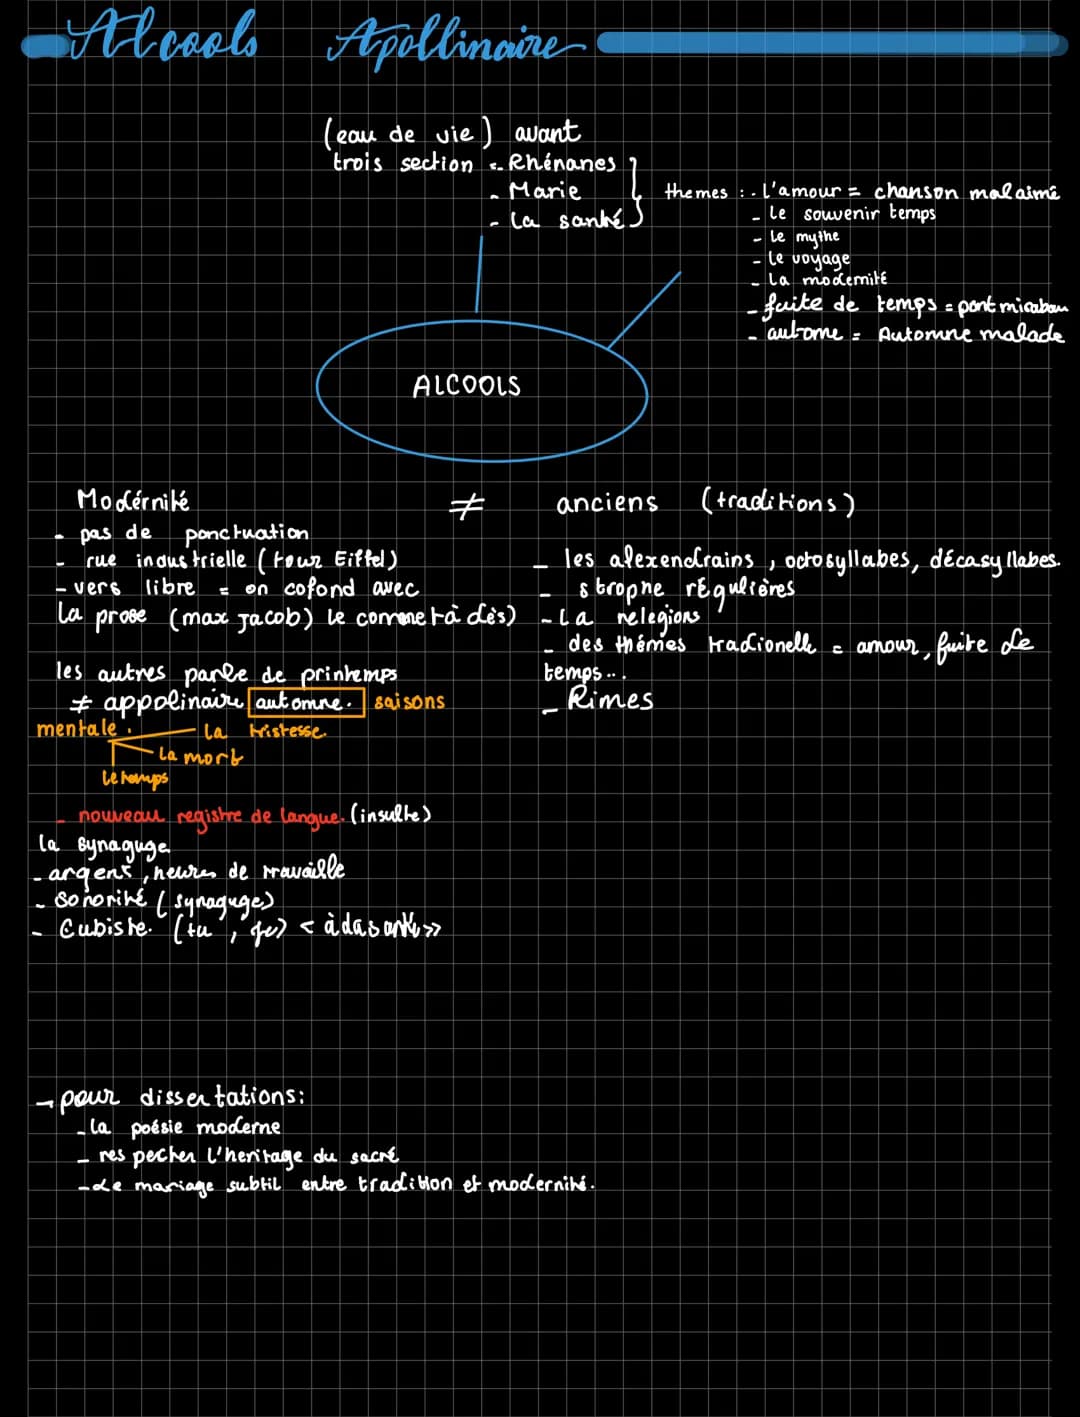 Alcools Apollinaire
(eau de vie) avant
trois section :- Rhénanes
- Marie
- La santé
themes : - L'amour = chanson mal aimé
- Le souvenir temps
- Le mythe
- Le voyage
- La modernité
- fuite de temps = pont micabau
- autome = Automne malade
ALCOOLS
Modérnité ≠ anciens (traditions)
- pas de ponctuation
- rue industrielle (tour Eiffel)
- vers libre = on cofond avec
La prose (max Jacob) le cornet à dès)
- les alexendrains, octosyllabes, décasyllabes.
- strophe régulières
- La relegions
- des thémes tradionelle = amour, fuite de
temps...
- Rimes
les autres parle de printemps
≠ appolinaire automne. saisons
mentale. La tristesse.
La mort
Le temps
- nouveau registre de langue. (insulte)
la synaguge
- argent, heures de travaille
- Sonorité (synaguge)
- Cubiste. (tu, je)
→ pour dissertations:
- la poésie moderne
- respecter l'heritage du sacré
- Le mariage subtil entre tradition et modernité.